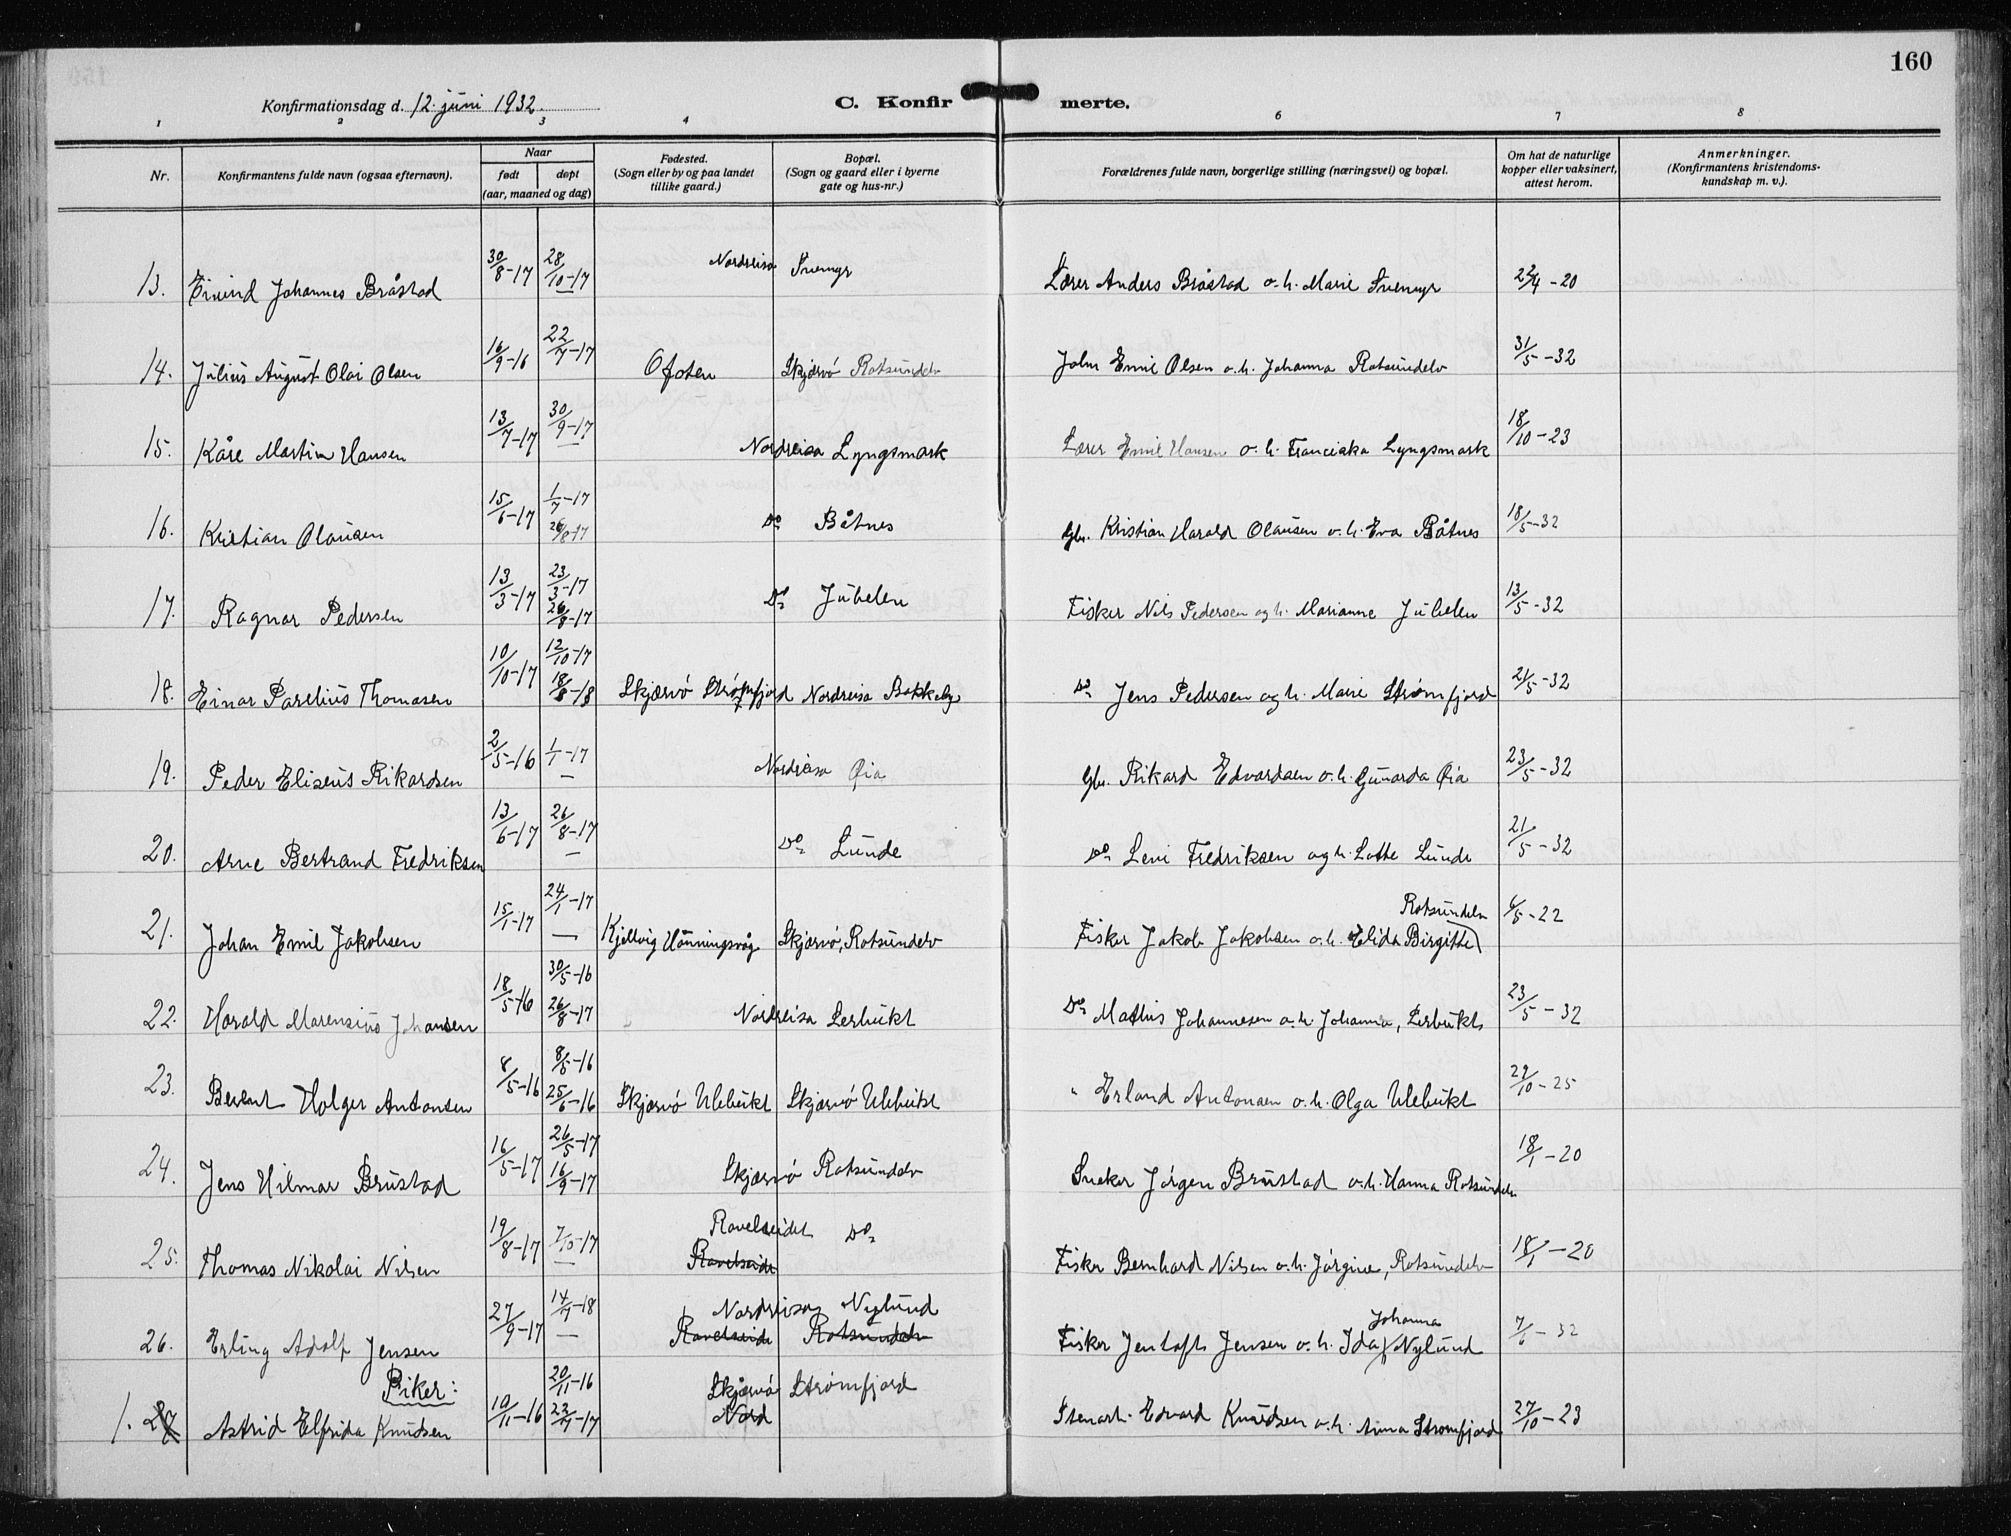 160
Konfirmationsdag d. 12. juni 1932.
C. Konfirmerte.
1 2 3 4 6 7 8
Nr. Konfirmantens fulde navn (ogsaa efternavn). Naar født døpt (aar, maaned og dag) Fødested. (Sogn eller by og paa landet tillike gaard.) Bopæl. (Sogn og gaard eller i byerne gate og hus-nr.) Forældrenes fulde navn, borgerlige stilling (næringsvei) og bopæl. Om hat de naturlige kopper eller vaksinert, attest herom. Anmerkninger. (Konfirmantens kristendomskundskap m. v.).
13. Eivind Johannes Bråstad 30/8-17 28/10-17 Nordreisa Snemyr Lærer Anders Bråstad o.h. Marie Snemyr 22/4-20
14. Julius August Olai Olsen 16/9-16 22/7-17 Ofoten Skjærvö Rotsundelv John Emil Olsen o.h. Johanna Rotsundelv 31/5-32
15. Kåre Martin Hansen 13/7-17 30/9-17 Nordreisa Lyngsmark Lærer Emil Hansen o.h. Franciska Lyngsmark 18/10-23
16. Kristian Olausen 15/6-17 1/7-17 26/8-17 Do Båtnes Gbr. Kristian Harald Olausen o.h. Eva Båtnes 18/5-32
17. Ragnar Pedersen 13/3-17 23/3-17 26/8-17 Do Jubelen Fisker Nils Pedersen og h. Marianne Jubelen 13/5-32
18. Einar Parelius Thomasen 10/10-17 12/10-17 18/8-18 Skjærvö Strömfjord Nordreisa Bakkeby Do Jens Pedersen og h. Marie Strömfjord 21/5-32
19. Peder Eliseus Rikardsen 2/5-16 1/1-17 Nordreisa Øia Gbr. Rikard Edvardsen o.h. Gunarda Øia 23/5-32
20. Arne Bertrand Fredriksen 13/6-17 26/8-17 Do Lunde Do Levi Fredriksen og h. Lotte Lunde 21/5-32
21. Johan Emil Jakobsen 15/1-17 24/1-17 Kjelvig Honningsvåg Skjærvö, Rotsundelv Fisker Jakob Jakobsen o.h. Elida Birgitte Rotsundelv 6/5-22
22. Harald Marensius Johansen 18/5-16 30/5-16 26/8-17 Nordreisa Lerbukt Do Mathis Johannesen o.h. Johanna, Lerbukt 23/5-32
23. Berent Holger Antonsen 8/5-16 8/5-16 25/6-16 Skjærvö Ulebukt Skjærvö Ulebukt " Erland Antonsen o.h. Olga Ulebukt 29/10-25
24. Jens Hilmar Brustad 16/5-17 26/5-17 16/9-17 Skjærvö Rotsundelv Snekker Jörgen Brustad o.h. Hanna Rotsundelv 18/1-20
25. Thomas Nikolai Nilsen 19/8-17 7/10-17 Ravelseidet Ravelseide Do Fisker Bernhard Nilsen o.h. Jörgine, Rotsundelv 18/1-20
26. Erling Adolf Jensen 27/9-17 14/7-18 Nordreisa Nylund Ravelseide Rotsundelv Fisker Jentoft Jensen o.h. Ida Johanna Nylund 7/6-32
Piker:
1. 27 Astrid Elfrida Knudsen 10/11-16 20/11-16 23/9-17 Skjærvö Strömfjord Nord Stenarb. Edvard Knudsen o.h. Anna Strömfjord 27/10-23